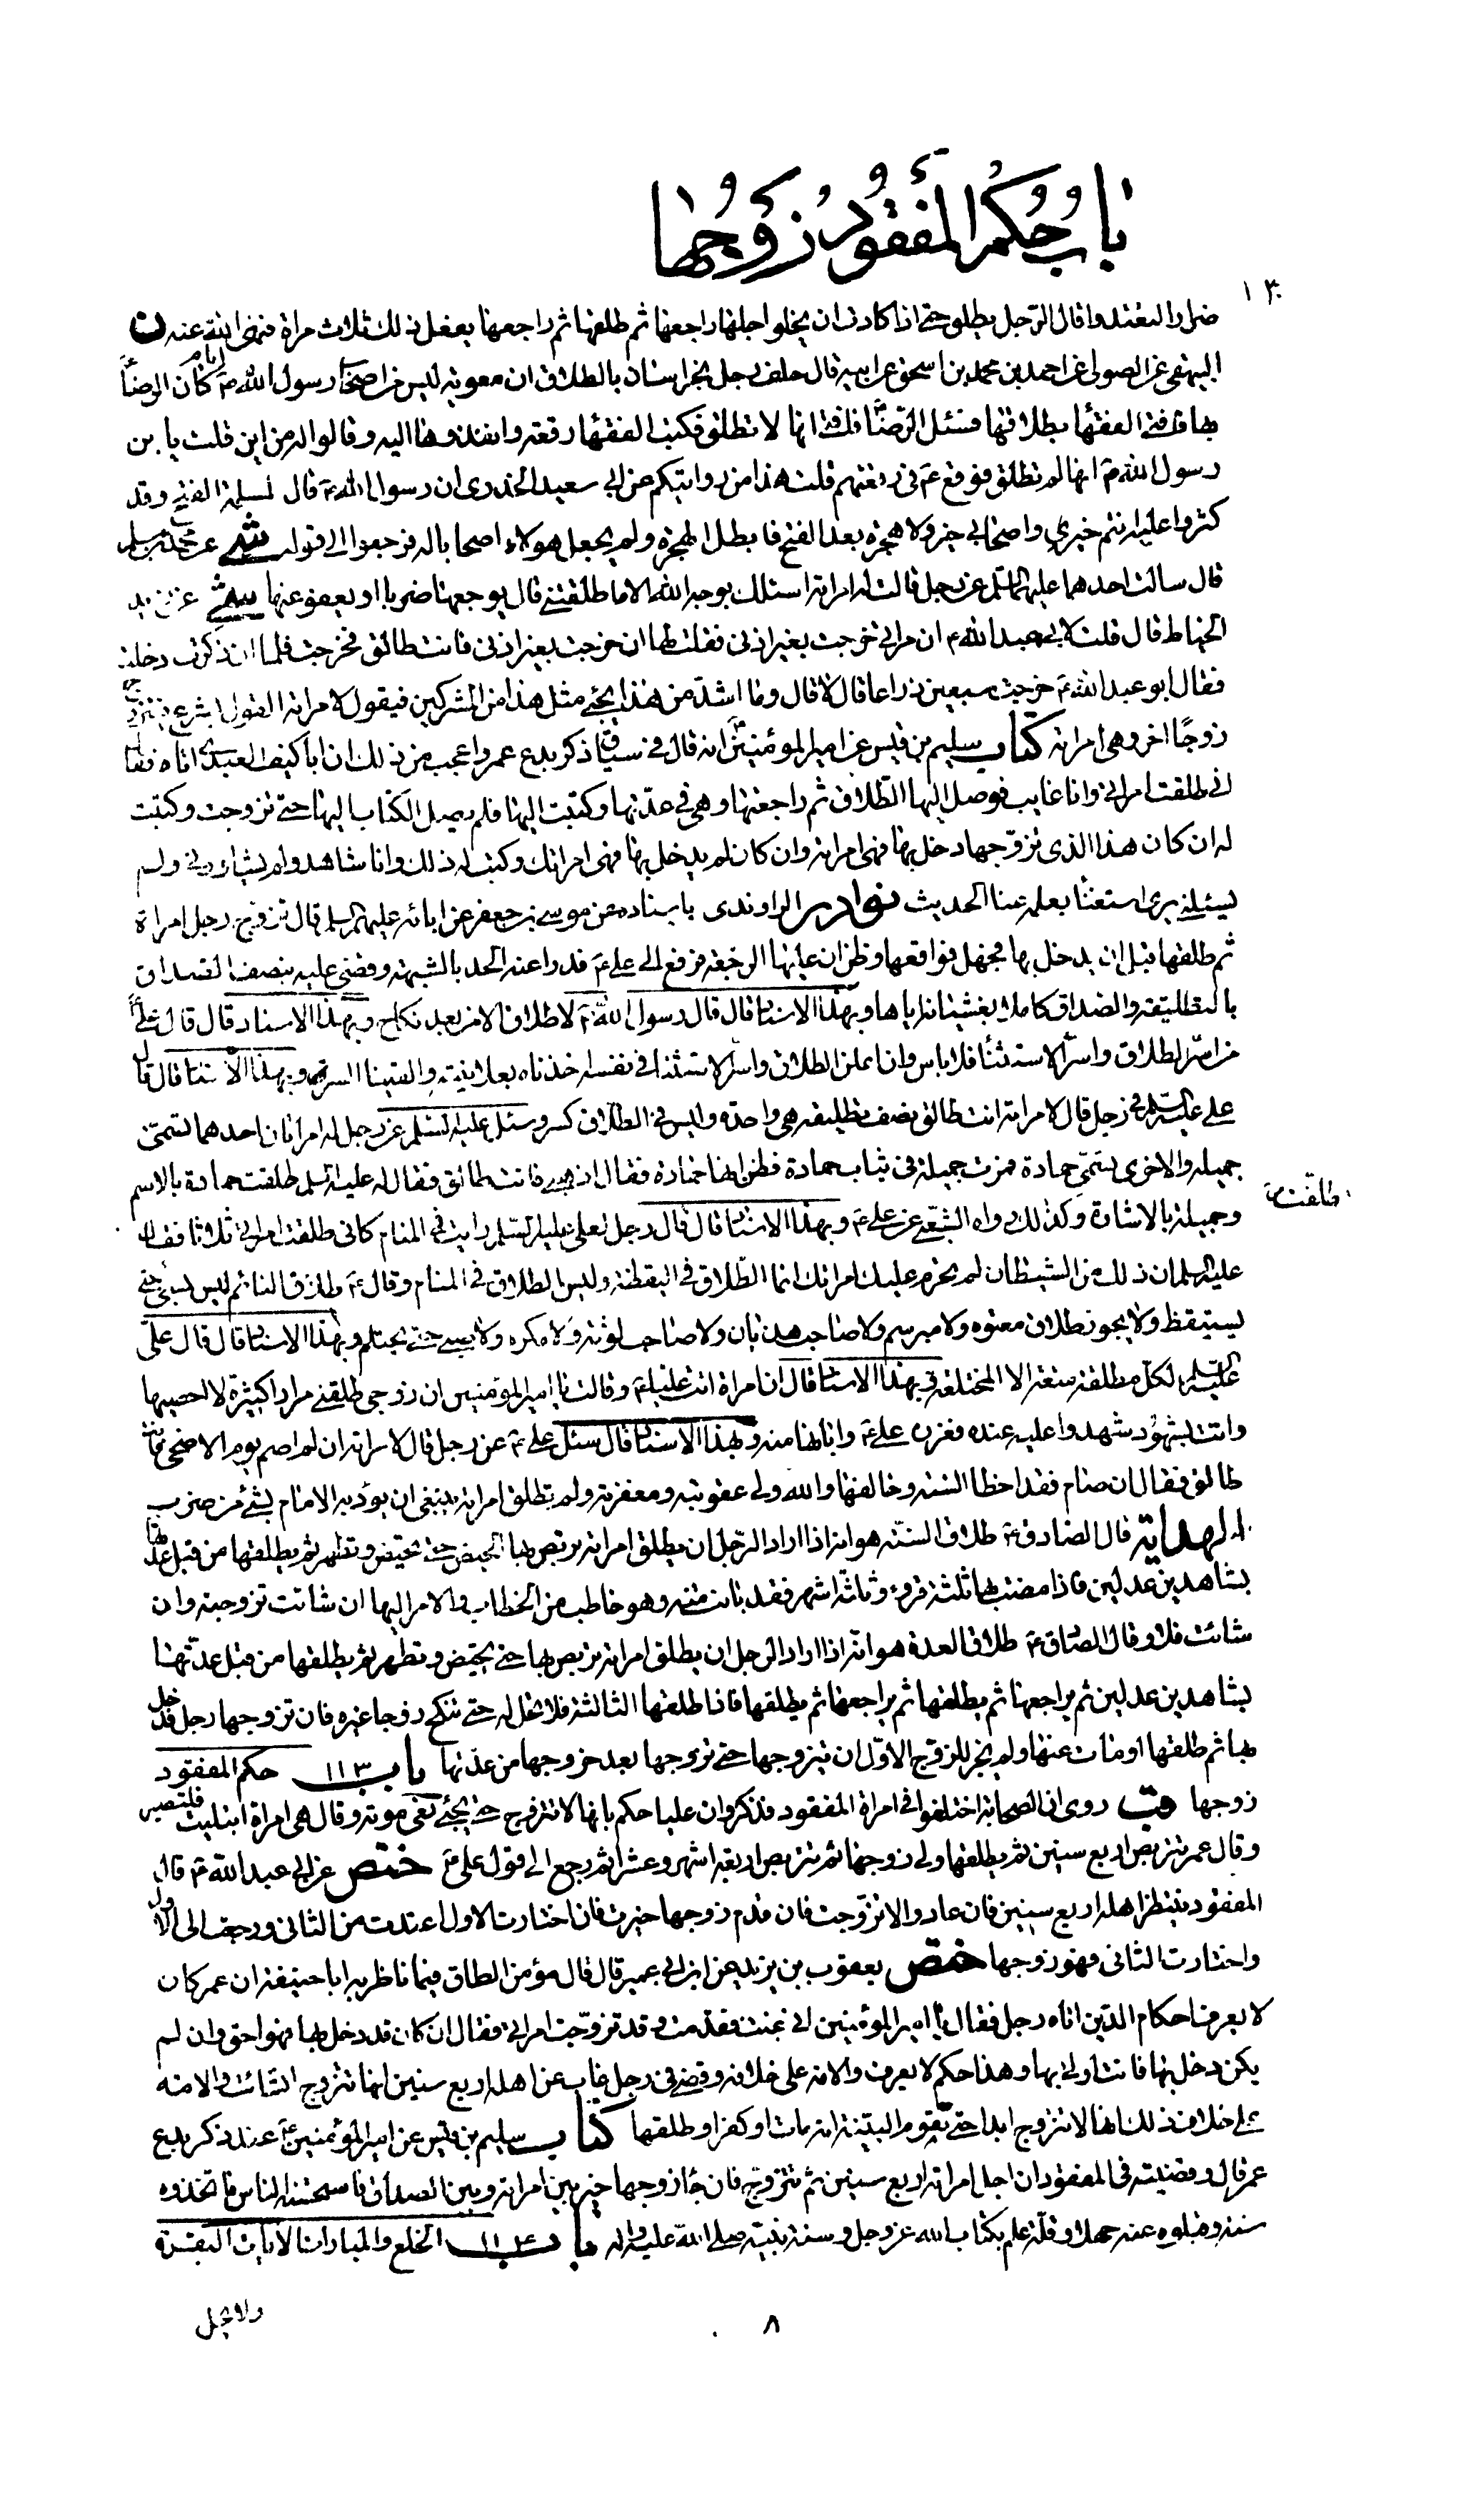 باب حُكم المفقود زوجها
١٣٠
ضرارا لتعتدوا قال الرجل يطلق حتى اذا كادت ان يخلوا اجلها راجعها ثم طلقها ثم راجعها يفعل ذلك ثلاث مراة فنهى الله عنه ن
البيهقى عن الصولى عن احمد بن محمد بن اسحق عن ابيه قال حلف رجل بخراسان بالطلاق ان معوية ليس من اصحاب رسول الله ص ايام كان الرضا
بها فافتى الفقهاء بطلاقها فسئل الرضا فافتى انها لا تطلق فكتب الفقهاء رقعة وانفذوها اليه وقالوا له من اين قلت يا بن
رسول الله ص انها لم تطلق فوقع ع فى رقعتهم قلت هذا من روايتكم عن ابى سعيد الخدرى ان رسول الله ص قال لمسلمة الفتح وقد
كثروا عليه انتم خير واصحابى خير ولا هجرة بعد الفتح فابطل الهجرة ولم يجعل هولاء اصحابا له فرجعوا الى قوله شى عن محمد بن مسلم
قال سالت احدهما عليهما السلم عن رجل قالت له امراته اسئلك بوجه الله الا ما طلقتنى قال يوجعها ضربا او يعفو عنها
الحناط قال قلت لابى عبد الله ع ان مراتى خرجت بغير اذنى فقلت لها ان خرجت بغير اذنى فانت طالق فخرجت فلما ان ذكرت دخلت
فقال ابو عبد الله ع خرجت سبعين ذراعا قال لا قال وما اشد من هذا يجئ مثل هذا من المشركين فيقول لامراته القول
زوجًا اخر وهى امراته كتاب سليم بن قيس عن امير المؤمنين انه قال فى سياق ذكر بدع عمر واعجب من ذلك ان ابا كيف العبدى اتاه فقال
انى طلقت امراتى وانا غايب فوصل اليها الطلاق ثم راجعتها وهى فى عدتها وكتبت اليها فلم يصل الكتاب اليها حتى تزوجت وكتبت
له ان كان هذا الذى تزوجها دخل بها فهى امراته وان كان لم يدخل بها فهى امراتك وكتب له ذلك وانا شاهد ولم يشاورنى ولم
يسئلنى يرى استغناء بعلمه عنا الحديث نوادر الراوندى باسناده عن موسى بن جعفر عن ابائه عليهم السلم قال تزوج رجل امراة
ثم طلقها قبل ان يدخل بها فجهل فواقعها وظن ان عليها الرجعة فرفع الى على ع فدرا عنه الحد بالشبهة وقضى عليه بنصف الصداق
بالتطليقة والصداق كاملا بغشيانه اياها وبهذا الاسناد قال قال رسول الله ص لا طلاق الا من بعد نكاح وبهذا الاسناد قال قال على ع
من اسر الطلاق واسر الاستثناء فلا باس وان اعلن الطلاق واسر الاستثناء فى نفسه اخذناه بعلانيته والقينا السر وبهذا الاسناد قال قال
على عليه السلم فى رجل قال لامراته انت طالق نصف تطليقة هى واحدة وليس فى الطلاق كسر وسئل عليه السلم عن رجل له امراتان احدهما تسمى
جميلة والاخرى تسمى حمادة فمرت جميلة فى ثياب حمادة فظن انها حمادة فقال اذهبى فانت طالق فقال له عليه السلم طلقت حمادة بالاسم
طلقت
وجميلة بالاشارة وكذلك رواه الشعبى عن على ع وبهذا الاسناد قال قال رجل لعلى عليه السلم رايت فى المنام كانى طلقت امراتى ثلاثا فقال
عليه السلم ان ذلك من الشيطان لم يحرم عليك امراتك انما الطلاق فى اليقظة وليس الطلاق فى المنام وقال ع طلاق النائم ليس بشئ حتى
يستيقظ ولا يجوز طلاق معتوه ولا مبرسم ولا صاحب هذيان ولا صاحب لوثة ولا مكره ولا صبى حتى يحتلم وبهذا الاسناد قال قال على
عليه السلم لكل مطلقة متعة الا المختلعة وبهذا الاسناد قال ان امراة اتت عليا ع وقالت يا امير المؤمنين ان زوجى طلقنى مرارا كثيرة لا احصيها
واتت بشهُود شهدوا عليه عنده فعزره على ع وابانها منه وبهذا الاسناد قال سئل على ع عن رجل قال لامراته ان لم اصم يوم الاضحى فانت
طالق فقال ان صام فقد اخطا السنة وخالفها والله ولى عقوبته ومغفرته ولم تطلق امراته وينبغى ان يؤدبه الامام بشئ من ضرب
الهداية قال الصادق ع طلاق السنة هو انه اذا اراد الرجل ان يطلق امراته تربص بها حتى تحيض وتطهر ثم يطلقها من قبل عدتها
بشاهدين عدلين فاذا مضت بها ثلثة قروء او ثلثة اشهر فقد بانت منه وهو خاطب من الخطاب والامر اليها ان شائت تزوجته وان
شائت فلا وقال الصادق ع طلاق العدة هو انه اذا اراد الرجل ان يطلق امراته تربص بها حتى تحيض وتطهر ثم يطلقها من قبل عدتها
بشاهدين عدلين ثم يراجعها ثم يطلقها ثم يراجعها ثم يطلقها فاذا طلقها الثالثة فلا تحل له حتى تنكح زوجا غيره فان تزوجها رجل فدخل
بها ثم طلقها او مات عنها ولم يجز للزوج الاول ان يتزوجها حتى تزوجها بعد خروجها من عدتها باب ١١٣ حكم المفقود
زوجها قب روى ان الصحابة اختلفوا فى امراة المفقود فذكروا ان عليا حكم بانها لا تتزوج حتى يجئ نعى موته وقال هى امراة ابتليت فلتصبر
وقال عمر تتربص اربع سنين ثم يطلقها ولى زوجها ثم تتربص اربعة اشهر وعشرا ثم رجع الى قول على ع ختص عن ابى عبد الله ع قال
المفقود ينتظر اهله اربع سنين فان عاد والا تزوجت فان قدم زوجها خيرت فان اختارت الاول اعتدت من الثانى ورجعت الى الاول
واختارت الثانى فهو زوجها ختص يعقوب بن يزيد عن ابن ابى عمير قال قال مؤمن الطاق فيما ناظر به ابا حنيفة ان عمر كان
لا يعرف احكام الدين اتاه رجل فقال يا امير المؤمنين انى غبت فقدمت وقد تزوجت امراتى فقال ان كان قد دخل بها فهو احق وان لم
يكن دخل بها فانت اولى بها وهذا حكم لا يعرف والامة على خلافه وقضى فى رجل غاب عن اهله اربع سنين انها تتزوج ان شائت والامة
على خلاف ذلك انها لا تتزوج ابدا حتى تقوم البينة انه مات او كفر او طلقها كتاب سليم بن قيس عن امير المؤمنين ع عند ذكر بدع
عمر قال وقضيته فى المفقود ان اجل امراته اربع سنين ثم تتزوج فان جاء زوجها خير بين امراته وبين الصداق فاستحسنه الناس فاتخذوه
سنة وقبلوه عنه جهلا وقلة علم بكتاب الله عز وجل وسنة نبيه صلى الله عليه واله باب ١١٤ الخلع والمبارات الايات البقرة
٨
ولا يحل